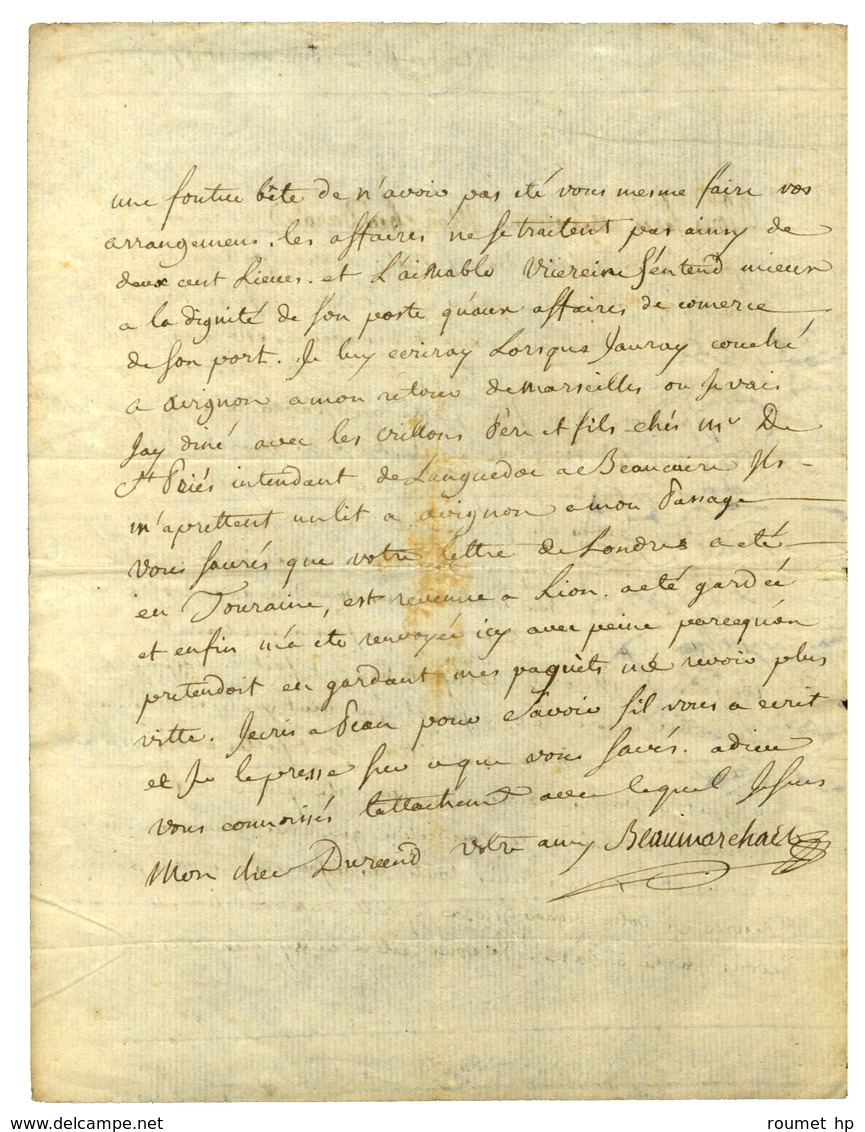 une foutue bête de n'avoir pas été vous mesme faire vos
arrangemens. les affaires ne se traitent pas ainsy de
deux cent Lieues. et L'aimable Vicereine s'entend mieux
a la dignité de son poste qu'aux affaires de comerce
de son port. Je luy ecriray Lorsque J'auray couché
a avignon a mon retour de Marseilles ou Je vais
J'ay diné avec les crillons Pere et fils chés Mr De
St Priés intendant de Languedoc a Beaucaire Ils
m'aprettent un lit a avignon a mon Passage
Vous saurés que votre Lettre de Londres a eté
en Touraine, est revenue a Lion. a eté gardée
et enfin m'a eté renvoyée icy avec peine parcequ'on
pretendoit en gardant mes paquets me revoir plus
vitte. J'ecris a Pean pour savoir s'il vous a ecrit
et Je le presse sur ce que vous savés. adieu
vous connoissés l'attachemt avec lequel Je suis
Mon cher Durand votre amy Beaumarchais
roumet hp